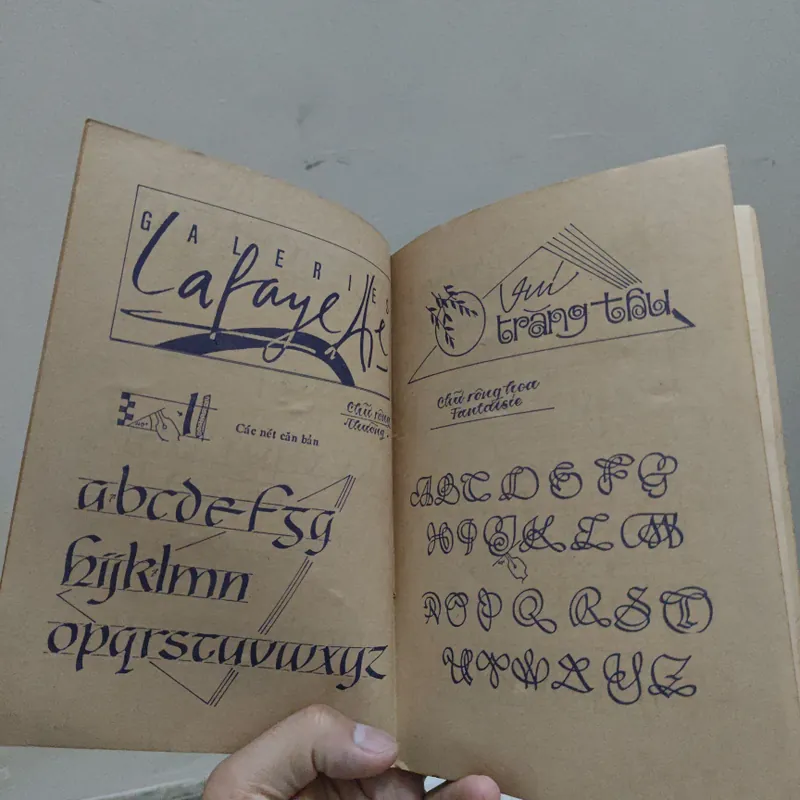 GALERIES
Lafayette
Các nét căn bản
Chữ rông
thường
a b c d e f g g
h i j k l m n
o p q r s t u v w x y z
Vui
trăng thu
Chữ rông hoa
Fantaisie
A B C D E F G
H I J K L M
N O P Q R S T
U V W X Y Z